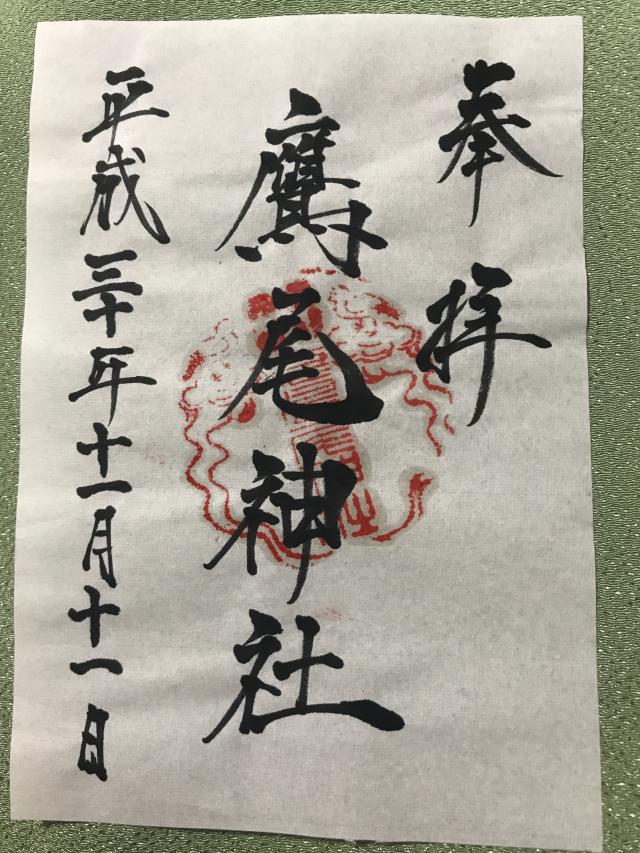 奉拝
鷹尾神社
平成三十年十一月十一日